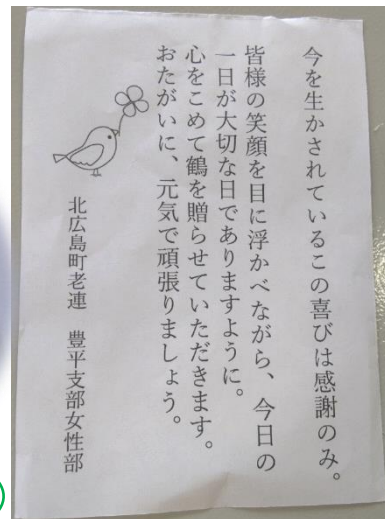 今を生かされているこの喜びは感謝のみ。
皆様の笑顔を目に浮かべながら、今日の
一日が大切な日でありますように。
心をこめて鶴を贈らせていただきます。
おたがいに、元気で頑張りましょう。
北広島町老連　豊平支部女性部